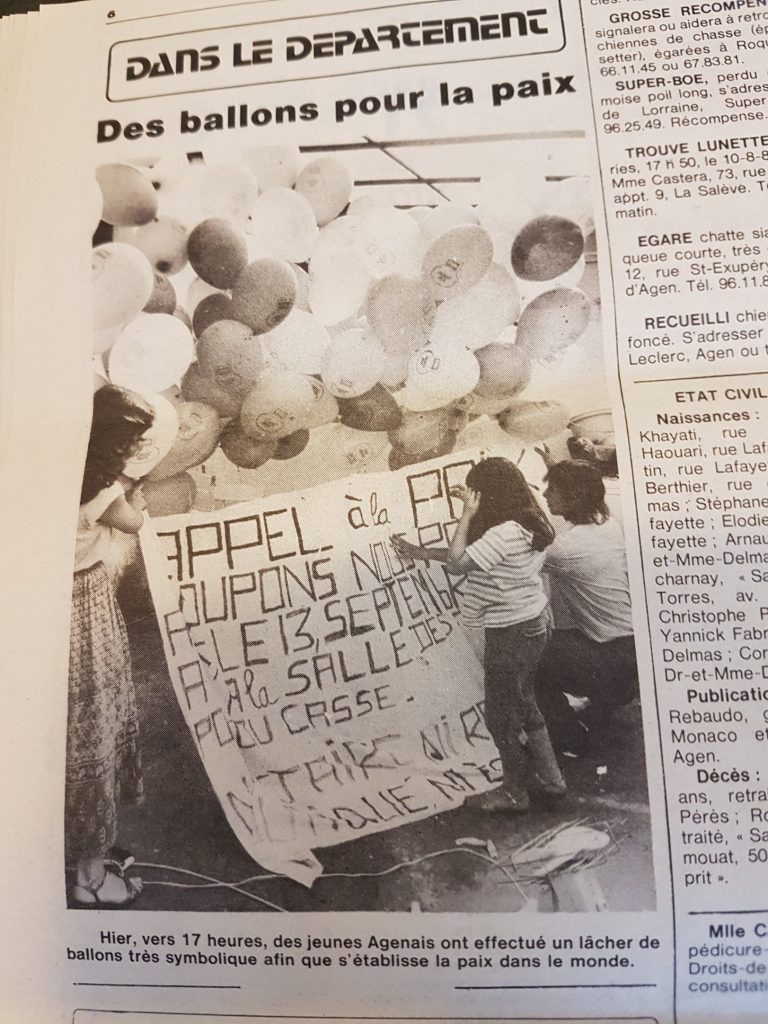 6
DANS LE DEPARTEMENT
Des ballons pour la paix
APPEL à la
COUPONS NOUS
LE 13, SEPTEMB
A à la SALLE DES
DU CASSE.
Hier, vers 17 heures, des jeunes Agenais ont effectué un lâcher de
ballons très symbolique afin que s'établisse la paix dans le monde.
GROSSE RECOMPEN
signalera ou aidera à retro
chiennes de chasse (ép
setter), égarées à Roqu
66.11.45 ou 67.83.81.
SUPER-BOE, perdu
moise poil long, s'adres
de Lorraine, Super
96.25.49. Récompense.
TROUVE LUNETTE
ries, 17 h 50, le 10-8-8
Mme Castera, 73, rue
appt. 9, La Salève. T
matin.
EGARE chatte sia
queue courte, très
12, rue St-Exupéry
d'Agen. Tél. 96.11.8
RECUEILLI chie
foncé. S'adresser
Leclerc, Agen ou t
ETAT CIVIL
Naissances :
Khayati, rue
Haouari, rue Lafi
tin, rue Lafaye
Berthier, rue
mas ; Stéphane
fayette ; Elodie
fayette ; Arnau
et-Mme-Delma
charnay, « Sa
Torres, av.
Christophe P
Yannick Fabr
Delmas ; Cor
Dr-et-Mme-D
Publicatio
Rebaudo, g
Monaco et
Agen.
Décès :
ans, retra
Pérès ; Ro
traité, « Sa
mouat, 50
prit ».
Mlle C
pédicure-
Droits-de
consultati